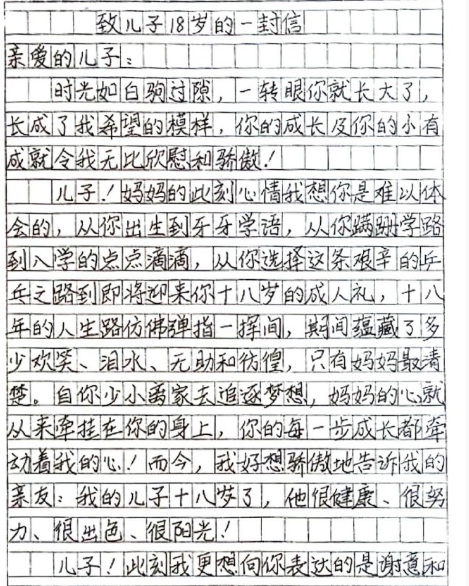 致儿子18岁的一封信
亲爱的儿子：
时光如白驹过隙，一转眼你就长大了，
长成了我希望的模样，你的成长及你的小有
成就令我无比欣慰和骄傲！
儿子！妈妈的此刻心情我想你是难以体
会的，从你出生到牙牙学语，从你蹒跚学路
到入学的点点滴滴，从你选择这条艰辛的乒
乓之路到即将迎来你十八岁的成人礼，十八
年的人生路仿佛弹指一挥间，期间蕴藏了多
少欢笑、泪水、无助和彷徨，只有妈妈最清
楚。自你少小离家去追逐梦想，妈妈的心就
从来牵挂在你的身上，你的每一步成长都牵
动着我的心！而今，我好想骄傲地告诉我的
亲友：我的儿子十八岁了，他很健康、很努
力、很出色、很阳光！
儿子！此刻我更想向你表达的是谢意和